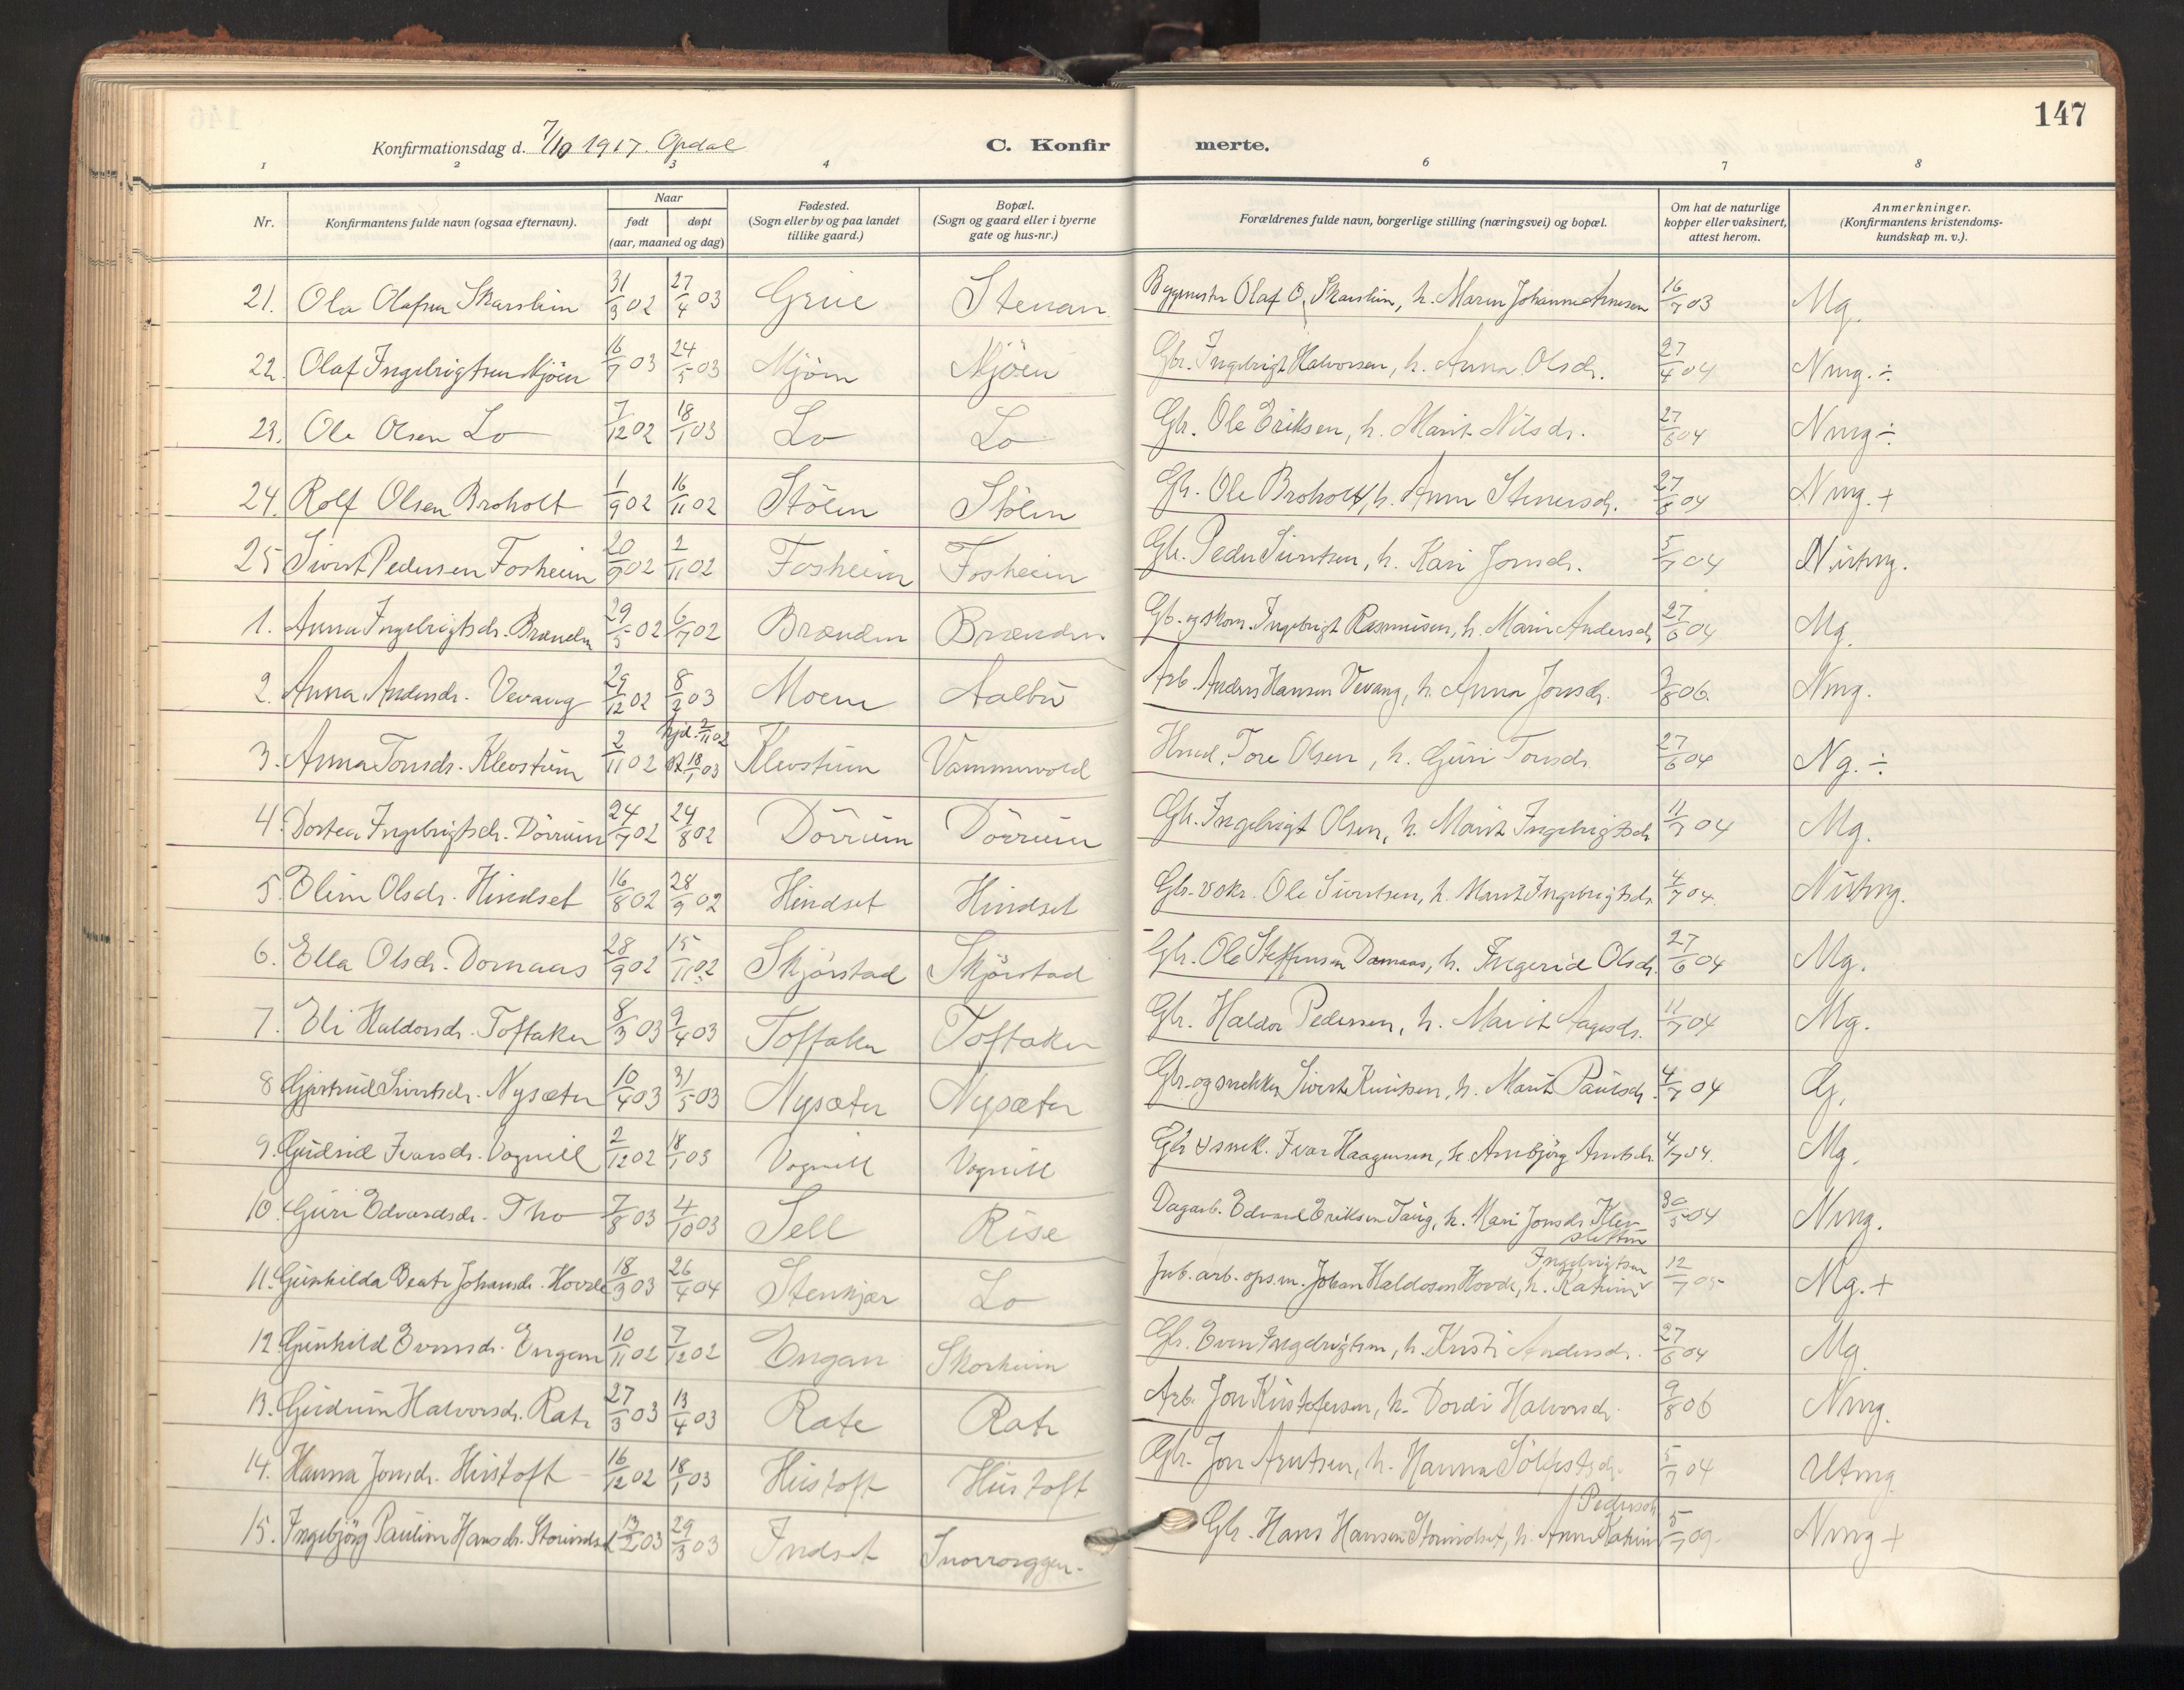 147
Konfirmationsdag d. 7/10 1917. Opdal
C. Konfir merte.
1 2 3 4 6 7 8
Nr.
Konfirmantens fulde navn (ogsaa efternavn).
Naar
født døpt
(aar, maaned og dag)
Fødested.
(Sogn eller by og paa landet
tillike gaard.)
Bopæl.
(Sogn og gaard eller i byerne
gate og hus-nr.)
Forældrenes fulde navn, borgerlige stilling (næringsvei) og bopæl.
Om hat de naturlige
kopper eller vaksinert,
attest herom.
Anmerkninger.
(Konfirmantens kristendoms-
kundskap m. v.).
21. Ola Olafsen Skarsheim 31/3 02 27/4 03 Grue Stenan Byggmester Olaf O. Skarsheim, h. Maren Johanne Arnesen 16/7 03 Mg.
22. Olaf Ingebrigtsen Mjöen 16/7 03 24/5 03 Mjöen Mjöen Gbr. Ingebrigt Halvorsen, h. Anna Olsdr. 27/4 04 Nmg. ÷
23. Ole Olsen Lo 7/12 02 18/1 03 Lo Lo Gbr. Ole Eriksen, h. Marit Nilsdr. 27/6 04 Nmg ÷
24. Rolf Olsen Broholt 1/9 02 16/11 02 Stölen Stölen Gbr. Ole Broholt, h. Anna Stenersdr. 27/6 04 Nmg. +
25 Sivert Pedersen Fosheim 20/9 02 2/11 02 Fosheim Fosheim Gbr. Peder Sivertsen, h. Kari Jonsdr. 5/7 04 Nutmg.
1. Anna Ingebrigtsdr. Brænden 29/5 02 6/7 02 Brænden Brænden Gb. og skom. Ingebrigt Rasmussen, h. Marit Andersdr. 27/6 04 Mg.
2. Anna Andersdr. Vevang 29/12 02 8/2 03 Moene Aalbu Arb. Anders Hansen Vevang, h. Anna Jonsdr. 3/8 06. Nmg.
3. Anna Toresdr. Klevstuen 2/11 02 hjd. 2/11 02 18/1 03 Klevstuen Vammervold Hmd. Tore Olsen, h. Guri Toresdr. 27/6 04 Ng. ÷
4. Dortea Ingebrigtsdr. Dörrum 24/7 02 24/8 02 Dörrum Dörrum Gbr. Ingebrigt Olsen, h. Marit Ingebrigtsdr. 11/7 04 Mg.
5 Elin Olsdr. Hindset 16/8 02 28/9 02 Hindset Hindset Gbr. Ole Sivertsen, h. Marit Ingebrigtsdr. 4/7 04. Nutmg.
6. Ella Olsdr. Dornaas 28/9 02 15/11 02 Skjörstad Skjörstad Gbr. Ole Steffensen Dornaas, h. Ingerid Olsdr. 27/6 04 Mg.
7. Eli Haldorsdr. Toftaker 8/3 03 9/4 03 Toftaker Toftaker Gbr. Haldor Pedersen, h. Marit Aagesdr. 11/7 04 Mg.
8 Gjertrud Sivertsdr. Nysæter 10/4 03 31/5 03 Nysæter Nysæter Gbr. og snekker Sivert Knutsen, h. Marit Paulsdr. 4/7 04 G.
9. Gudrid Ivarsdr. Vognill 2/12 02 18/1 03 Vognill Vognill Gbr & snek. Ivar Haagensen, h. Arnbjörg Arntsdr. 4/7 04. Mg.
10. Guri Edvardsdr. Tho 7/8 03 4/10 03 Sell Rise Dagarb. Edvard Eriksen Taug, h. Mari Jonsdr. Klev-
sletten 30/5 04 Nmg.
11. Gunhilda Beate Johansdr. Hovde 18/3 03 26/4 04 Stenkjær Lo Jub. arb. ops.m. Johan Haldosen Hovde, h. Katrine Ingebrigtsen 12/7 05 Mg. +
12. Gunhild Evensdr. Engan 10/11 02 7/12 02 Engan Skorheim Gbr. Even Ingebrigtsen, h. Kristi Andersdr. 27/6 04 Mg.
13. Gudrun Halvorsdr. Rate 27/3 03 13/4 03 Rate Rate Arb. Jon Kristofersen, h. Dordi Halvorsdr. 9/8 06 Nmg.
14. Hanna Jonsdr. Hustoft 16/12 02 18/1 03 Hustoft Hustoft Gbr. Jon Arntsen, h. Hanna Sölfestsdr. 5/7 04 Utmg
15. Ingebjörg Pauline Hansdr. Storindset 13/2 03 29/3 03 Indset Snoroeggen. Gbr. Hans Hansen Storindset, h. Anne Katrine Pedersdr. 5/7 09. Nmg +